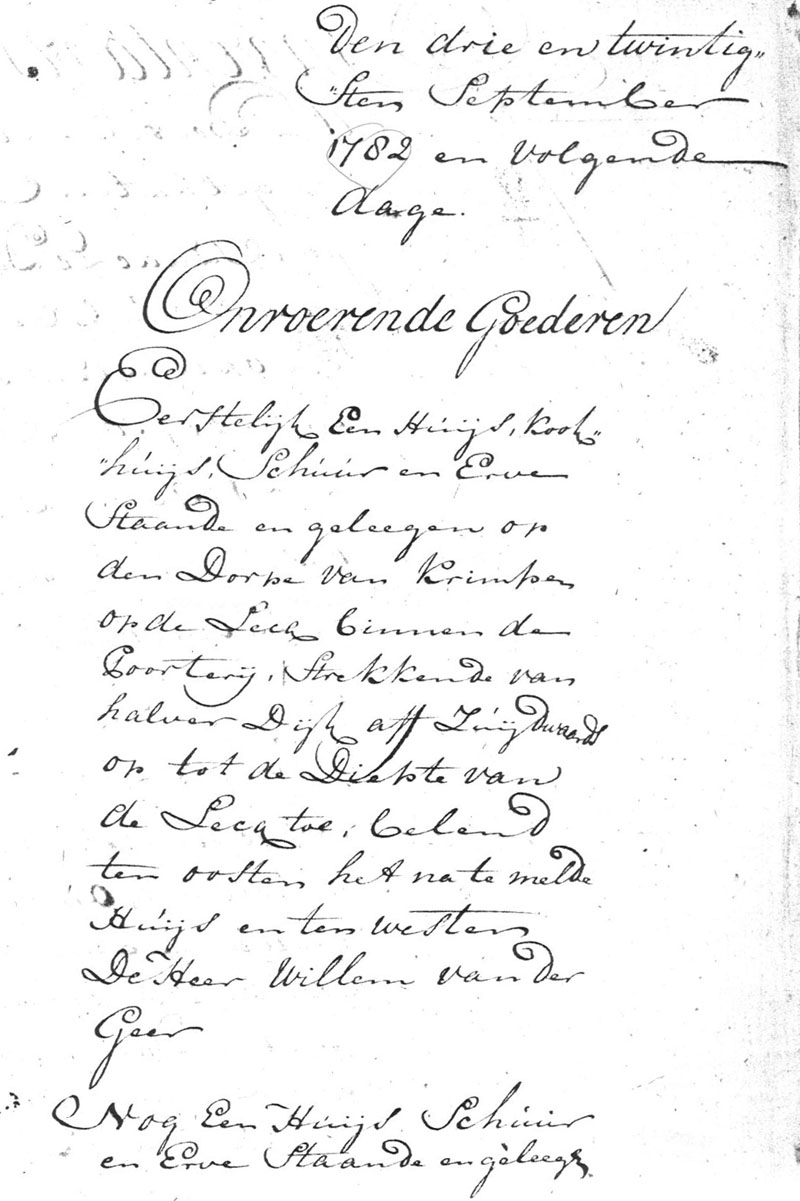 Den drie en twintig„
„Sten September
1782 en volgende
dage.
Onroerende Goederen
Eerstelijk Een Huijs, kook„
„huijs, Schuur en Erve
Staande en geleegen op
den Dorpe van Krimpen
op de Lecq binnen de
Poorterij, Strekkende van
halver Dijk aff Zuijdwaards
op tot de Diepte van
de Lecq toe, belend
ten oosten het na te melde
Huijs en ten westen
De Heer Willem van der
Geer
Nog Een Huijs Schuur
en Erve Staande en geleegn